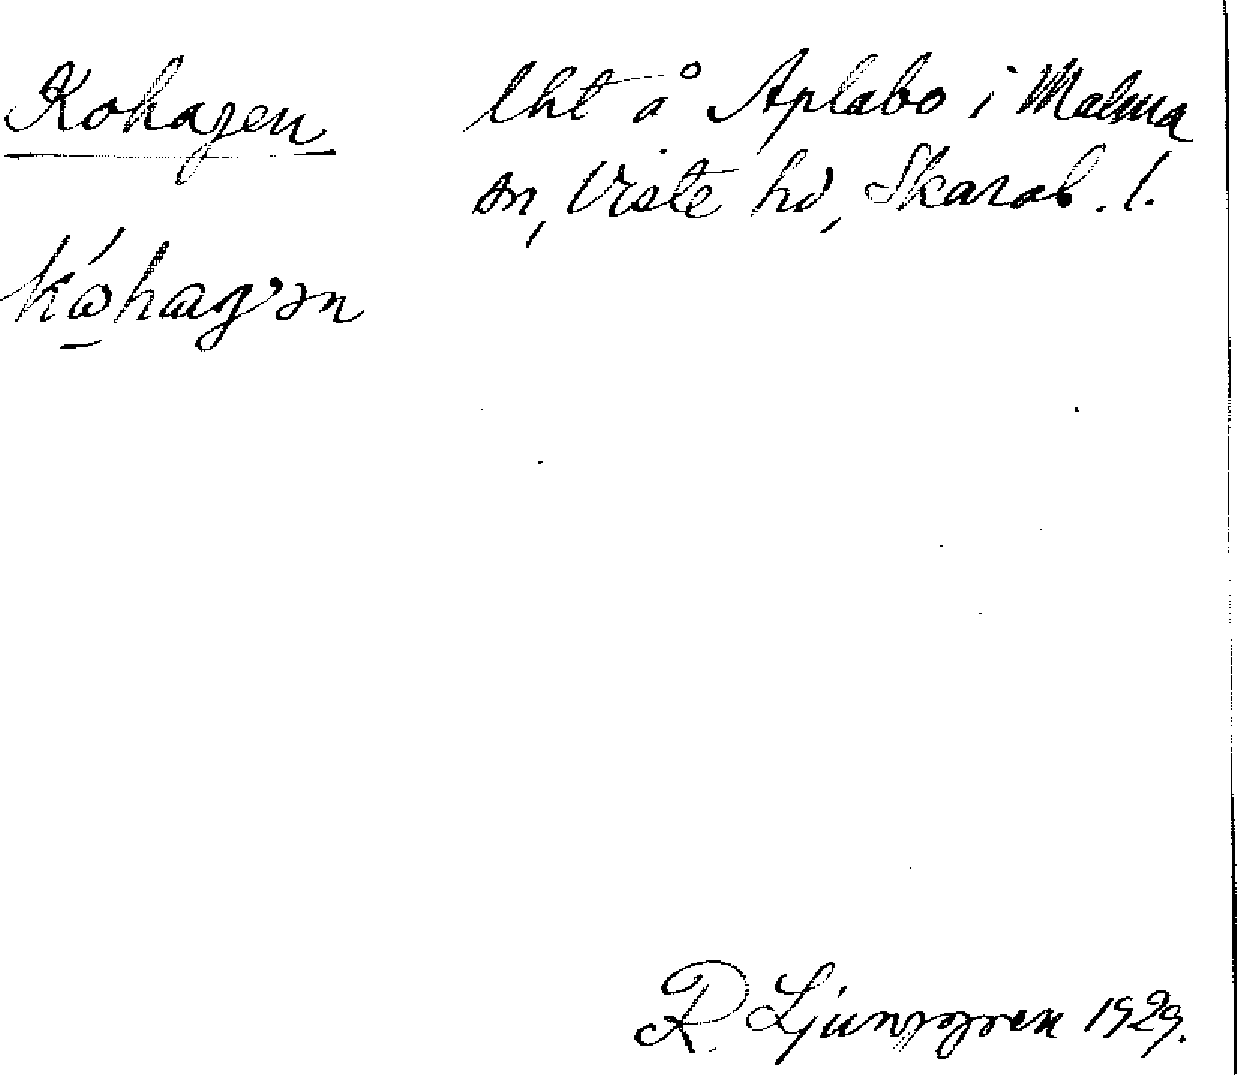 Kohagen
lht å Aplabo i Malma
sn, Viste hd, Skarab. l.
R. Ljunggren 1929.